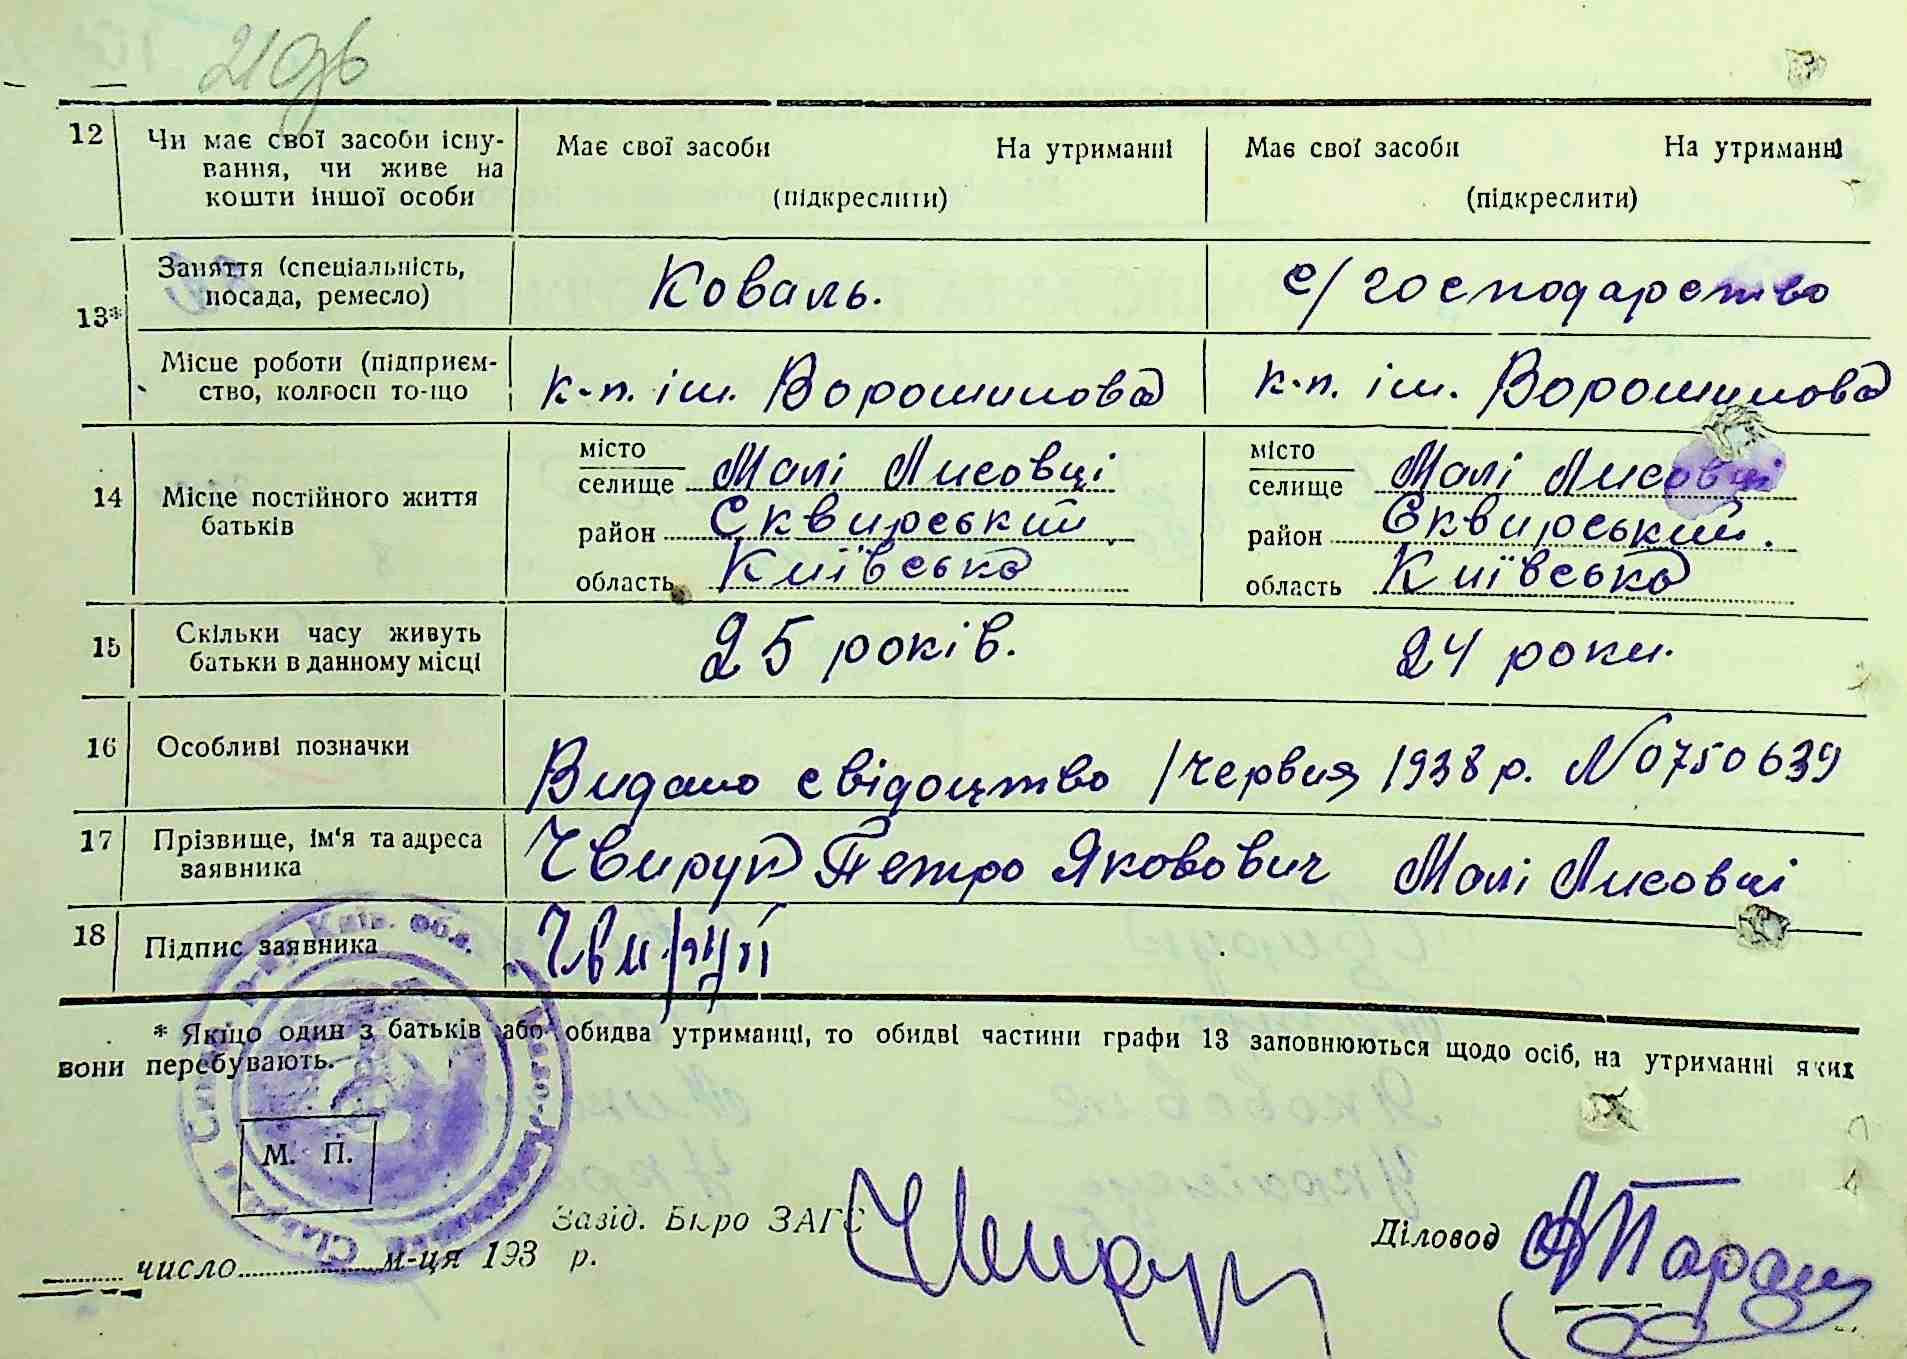 12 Чи має свої засоби існу-
вання, чи живе на
кошти іншої особи
Має свої засоби На утриманні
(підкреслити)
Має свої засоби На утриманні
(підкреслити)
13*
Заняття (спеціальність,
посада, ремесло)
Коваль.
с/господарство
Місце роботи (підприєм-
ство, колгосп то-що
к-п. ім. Ворошилова
к-п. ім. Ворошилова
14 Місце постійного життя
батьків
місто
селище Малі Лисовці
район Сквирський
область Київська
місто
селище Малі Лисовці
район Сквирський.
область Київська
15 Скільки часу живуть
батьки в данному місці
25 років.
24 роки.
16 Особливі позначки
Видано свідоцтво 1 червня 1938 р. № 0750639
17 Прізвище, ім'я та адреса
заявника
Чвирук Петро Яковович Малі Лисовці
18 Підпис заявника
* Якщо один з батьків або обидва утриманці, то обидві частини графи 13 заповнюються щодо осіб, на утриманні яких
вони перебувають.
М. П.
Завід. Бюро ЗАГС
Діловод
число м-ця 193 р.